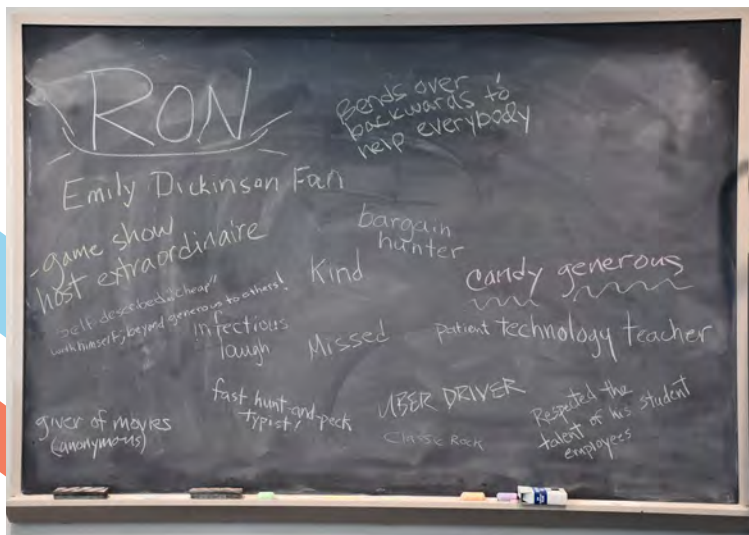 RON
Bends over
backwards to
help everybody
Emily Dickinson Fan
-game show
host extraordinaire
bargain
hunter
Kind
candy generous
"self-described "cheap"
with himself; beyond generous to others!
infectious
laugh
Missed
patient technology teacher
giver of movies
(anonymous)
fast hunt-and-peck
typist!
UBER DRIVER
Classic Rock
Respected the
talent of his student
employees